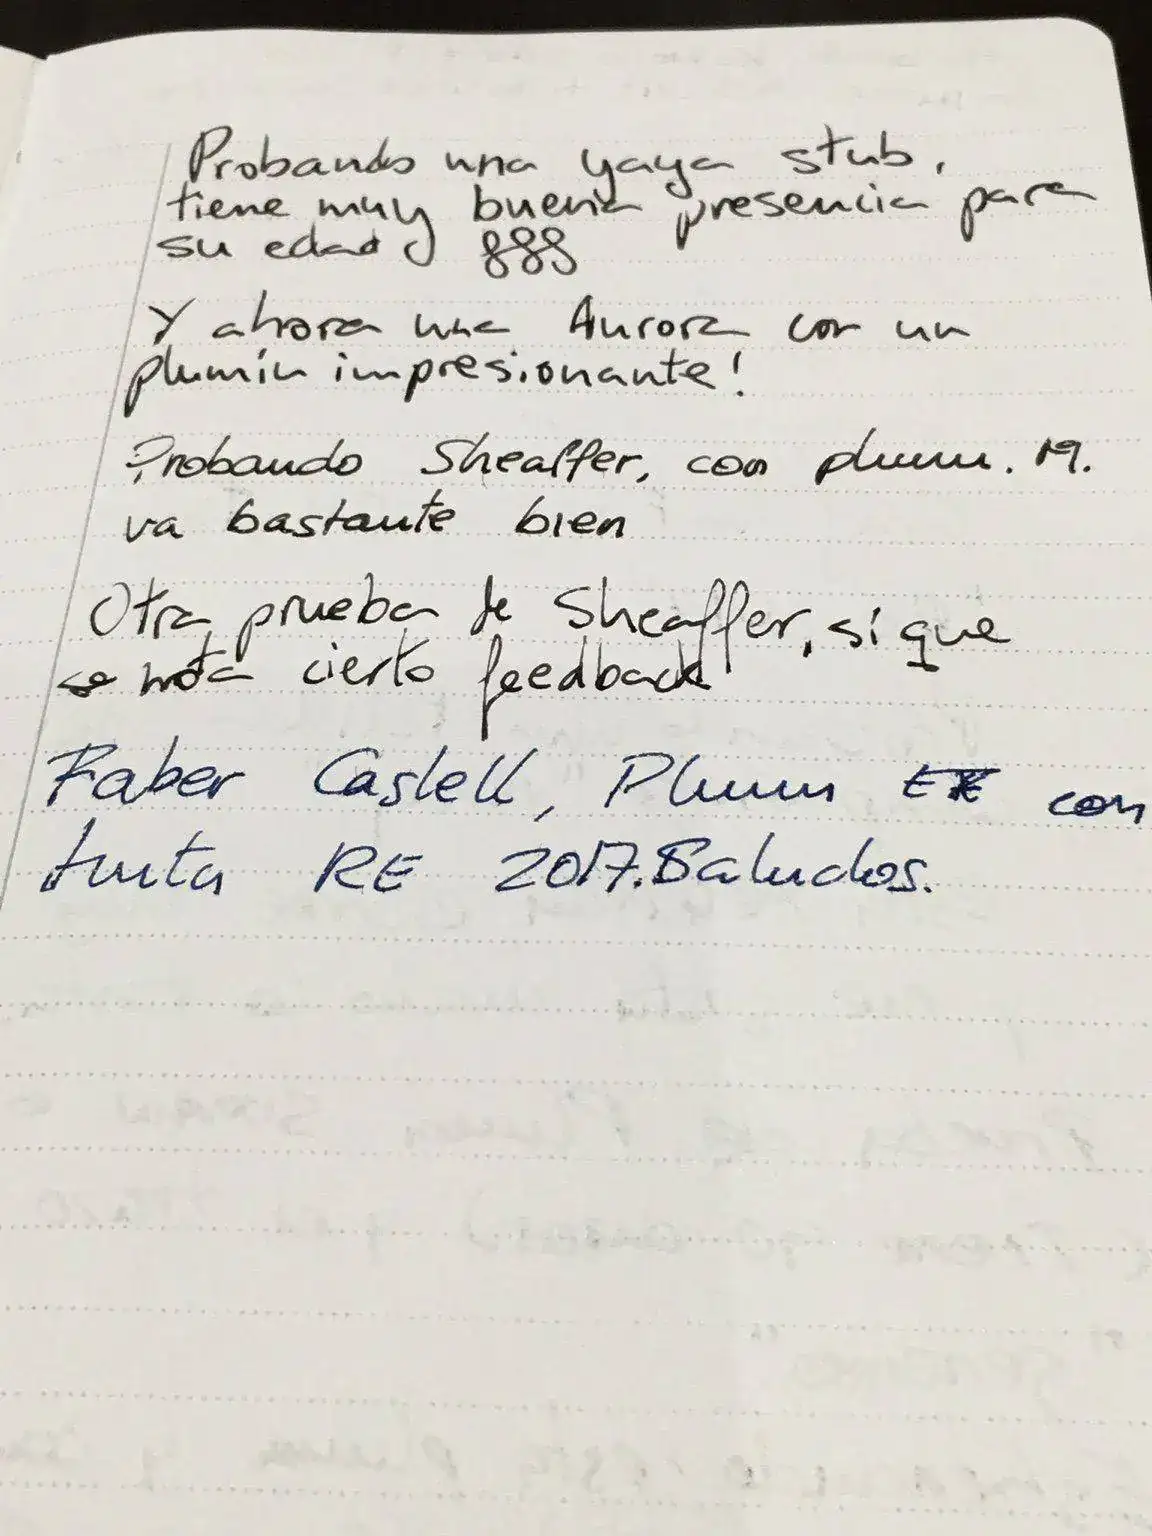 Probando una yaya stub,
tiene muy buena presencia para
su edad
Y ahora una Aurora con un
plumín impresionante!
Probando Sheaffer, con plumin. M.
va bastante bien
Otra prueba de Sheaffer, sí que
se nota cierto feedback
Faber Castell, Plumin EF con
tinta RE 2017. Saludos.